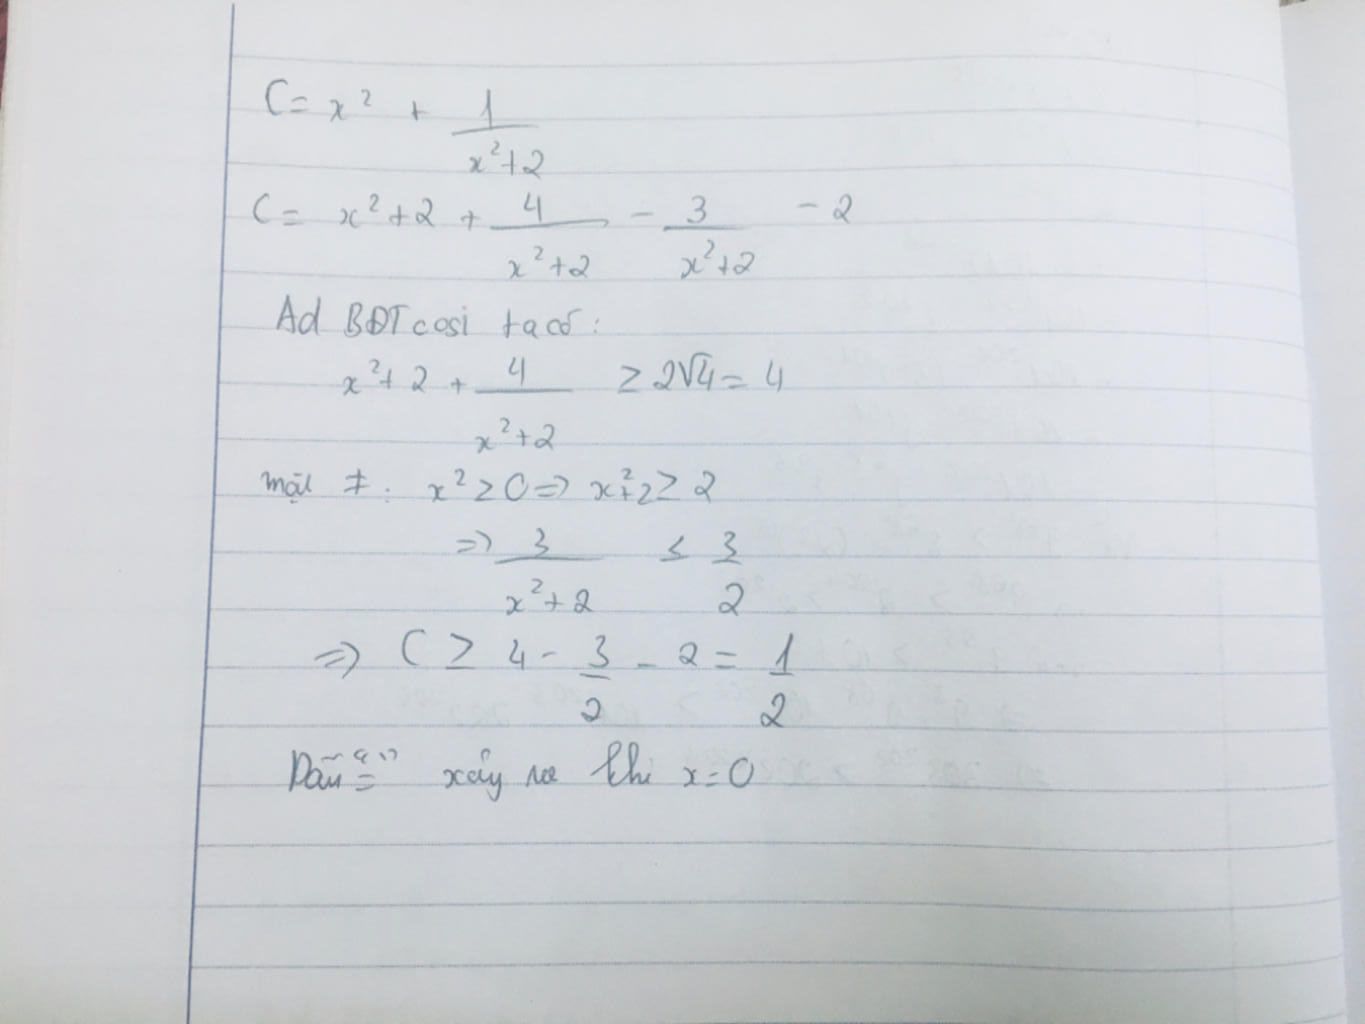 C = x² + 1/(x²+2)
C = x²+2 + 4/(x²+2) - 3/(x²+2) - 2
Ad BĐT cosi ta có:
x²+2 + 4/(x²+2) ≥ 2√4 = 4
mặt ≠: x² ≥ 0 => x²+2 ≥ 2
=> 3/(x²+2) ≤ 3/2
=> C ≥ 4 - 3/2 - 2 = 1/2
Dấu "=" xảy ra khi x=0